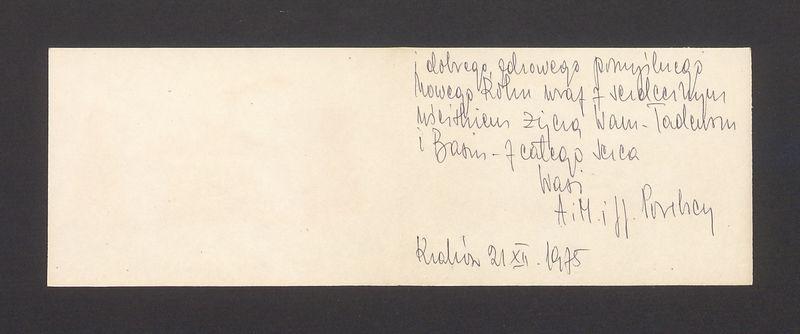 i dobrego, zdrowego pomyślnego
Nowego Roku wraz z serdecznym
uściskiem życzą Wam - Tadeuszu
i Basiu - z całego serca
Wasi
A. i M. i
Kraków 21 XII. 1975